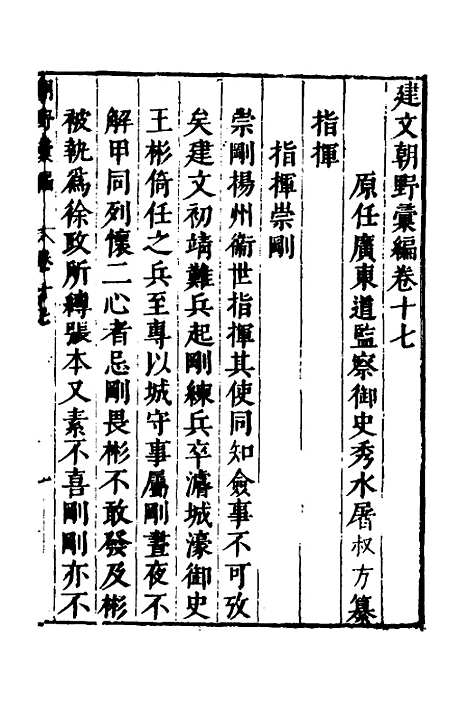 建文朝野彙編卷十七
原任廣東道監察御史秀水屠叔方纂
指揮
指揮崇剛
崇剛楊州衞世指揮其使同知僉事不可攷
矣建文初靖難兵起剛練兵卒濬城濠御史
王彬倚任之兵至專以城守事屬剛晝夜不
解甲同列懷二心者忌剛畏彬不敢發及彬
被執爲徐政所縛張本又素不喜剛剛亦不
朝野彙編 卷十七 一